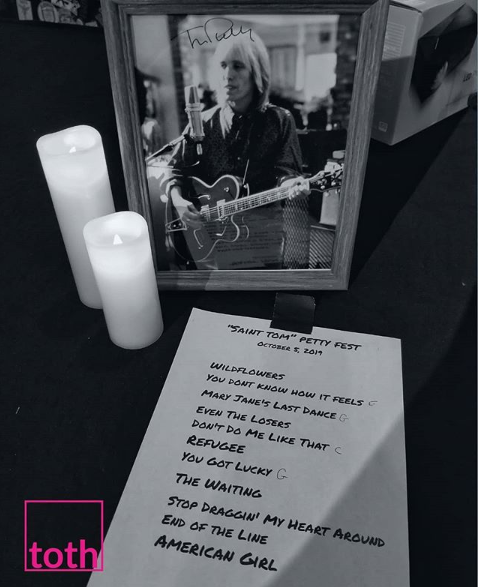 Tom Petty
"SAINT TOM" PETTY FEST
OCTOBER 5, 2019
WILDFLOWERS
YOU DONT KNOW HOW IT FEELS G
MARY JANE'S LAST DANCE G
EVEN THE LOSERS
DON'T DO ME LIKE THAT C
REFUGEE
YOU GOT LUCKY G
THE WAITING
STOP DRAGGIN' MY HEART AROUND
END OF THE LINE
AMERICAN GIRL
toth